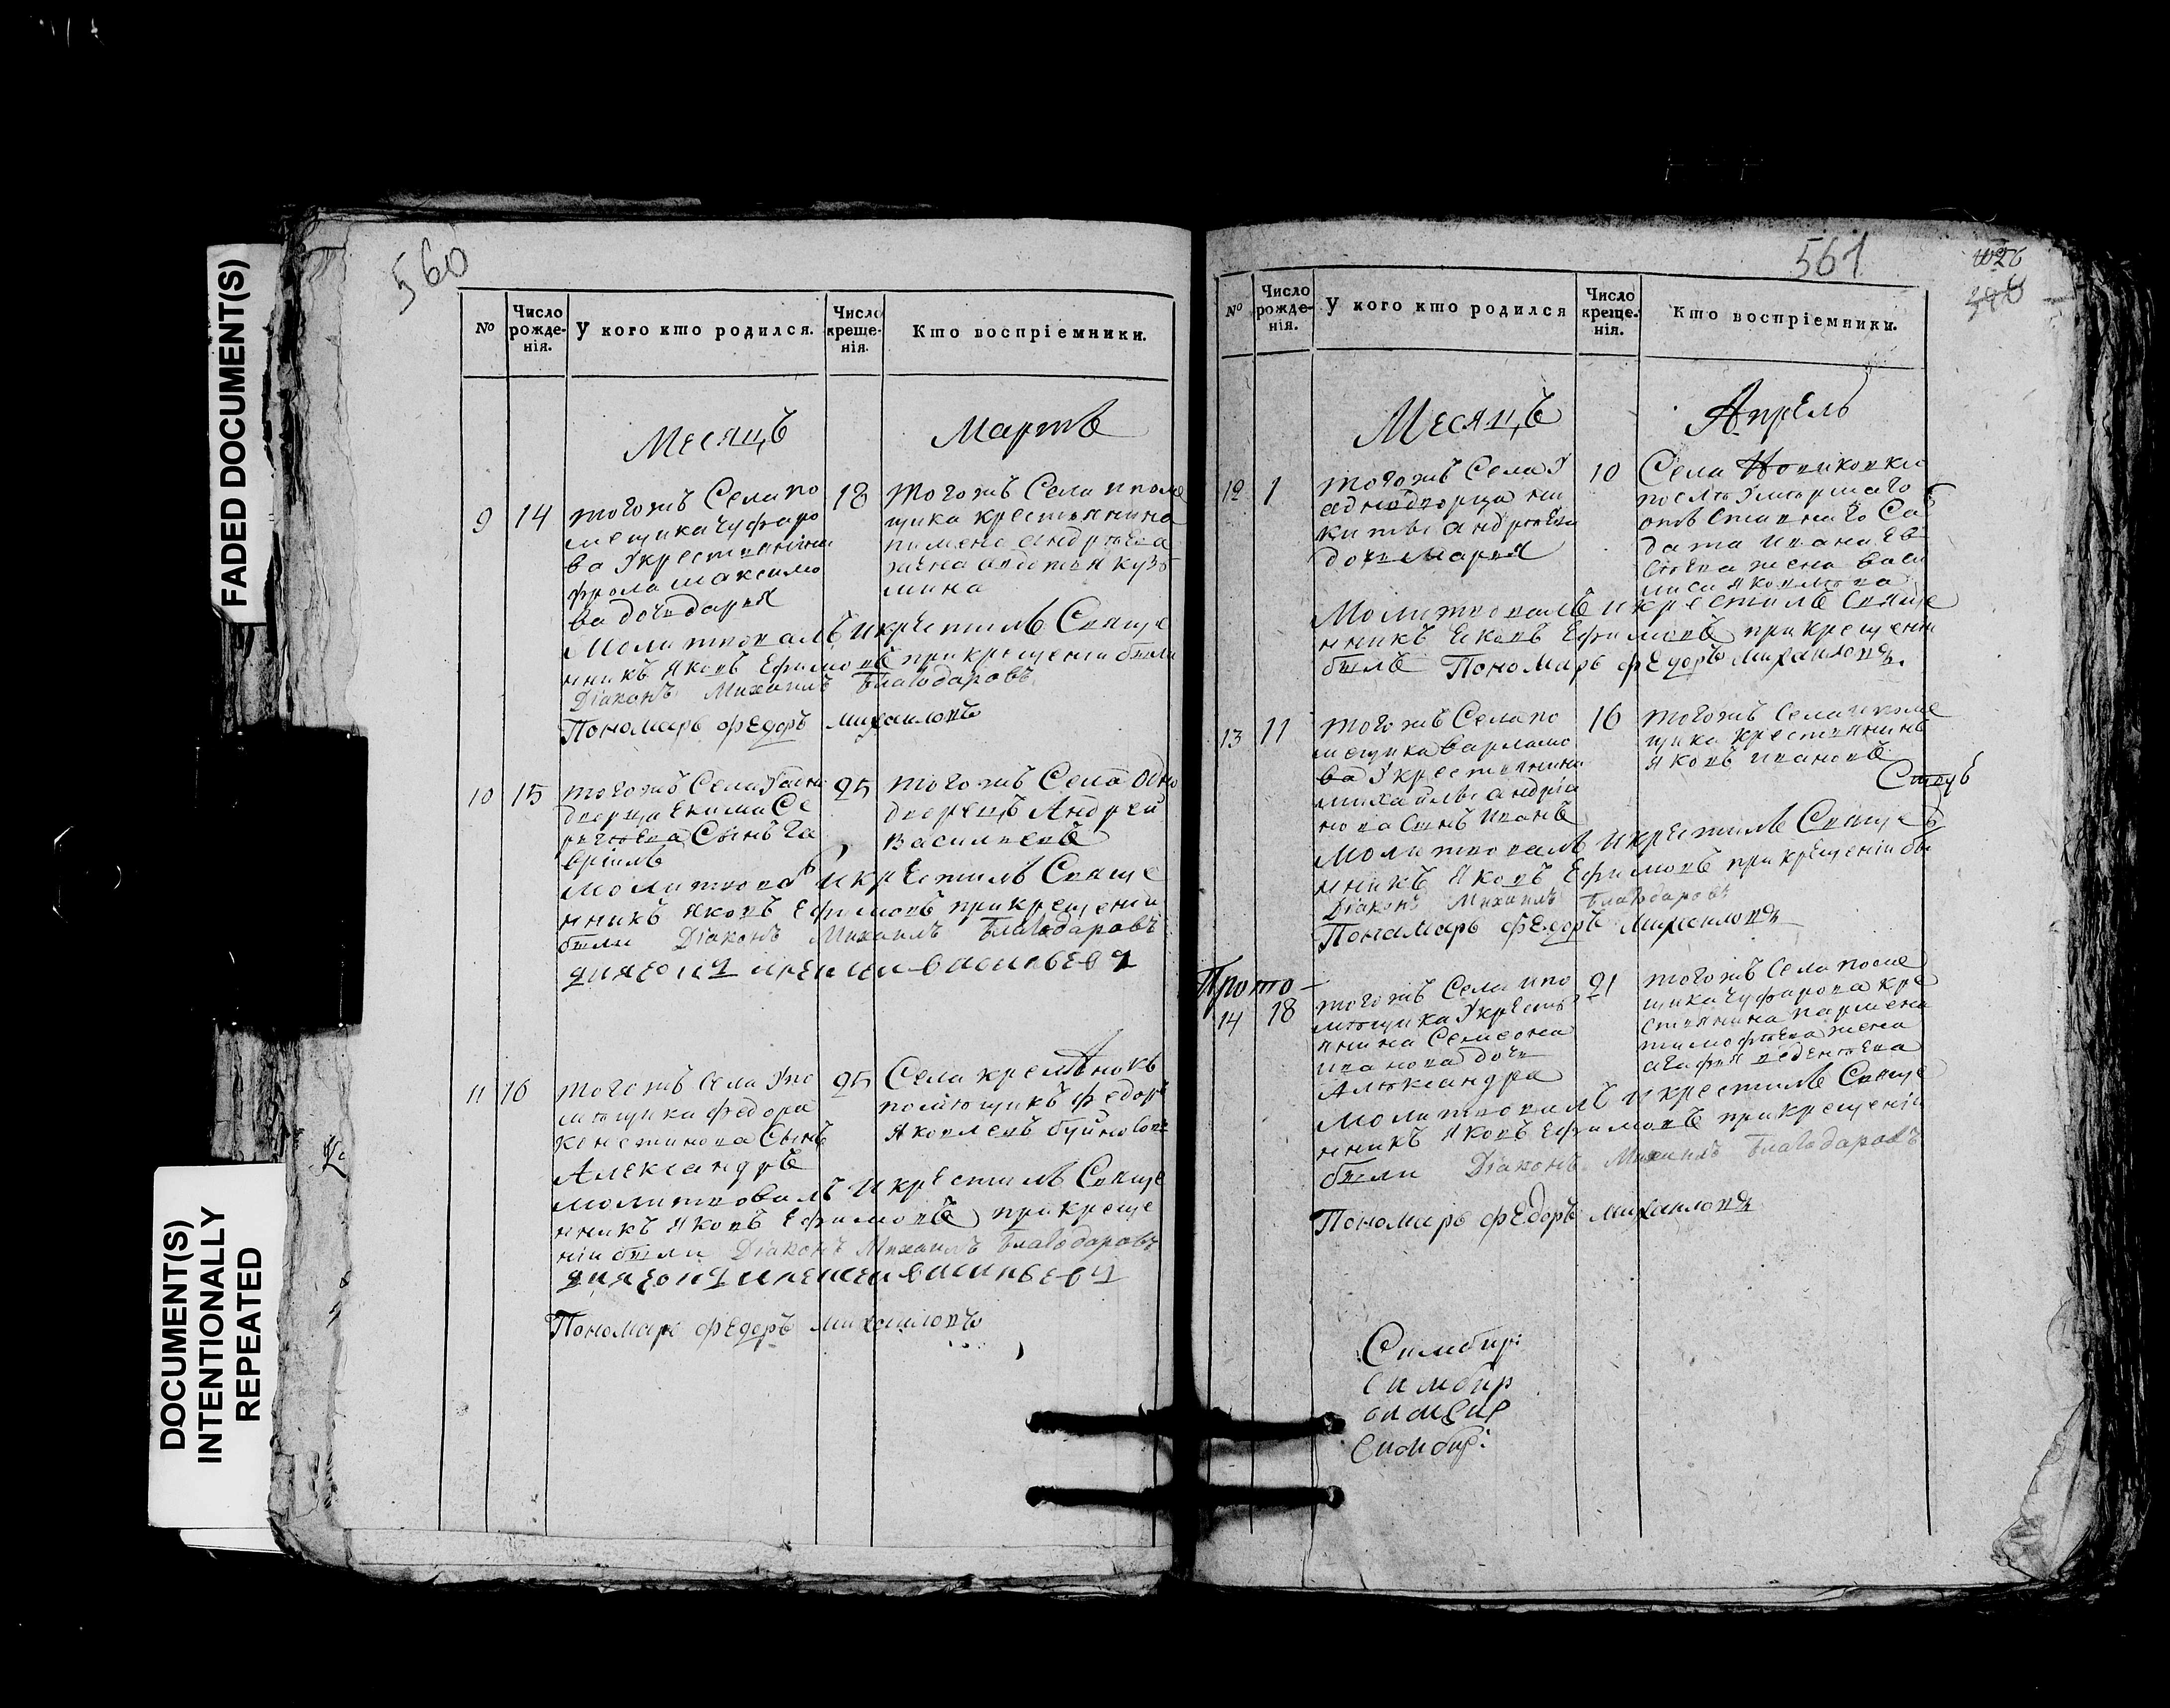 FADED DOCUMENT(S)
DOCUMENT(S)
INTENTIONALLY
REPEATED
560
№
Число рожде-нія.
У кого кто родился.
Число креще-нія.
Кто воспріемники.
Месяцъ Мартъ
9 14 18
тогожъ Села по
мещика Чуфаро
ва У крестьянина
фрола максимо
ва дочь дарья
тогожъ Села поме
щика крестьянина
пимена андреева
жена авдотья кузь
мина
Молитвовалъ и крестилъ Свяще
нникъ Яковъ Ефимовъ при крещеніи были
Діаконъ Михаилъ Благодаровъ
Пономарь федоръ михаиловъ
10 15 25
тогожъ Села У адно
дворца Екима Се
ргеева Сынъ Га
вріилъ
тогожъ Села Одно
дворецъ Андрей
Васильевъ
Молитвова и крестилъ Свяще
нникъ Яковъ Ефимовъ при крещеніи
были Діаконъ Михаилъ Благодаровъ
11 16 25
тогожъ Села У по
мещика федора
Сынъ
Александръ
Села
помещикъ федоръ
Яковлевъ
Молитвовалъ и крестилъ Свяще
нникъ Яковъ Ефимовъ при креще
ніи были Діаконъ Михаилъ Благодаровъ
Пономарь федоръ михаиловъ
561
№
Число рожде-нія.
У кого кто родился
Число креще-нія.
Кто воспріемники.
Месяцъ Апрель
12 1 10
тогожъ Села У
аднодворца ни
киты андреева
дочь Марья
Села
после Умершаго
отставнаго Сол
дата ивана Ев
сеева жена васи
лиса яковлева
Молитвовалъ и крестилъ Свяще
нникъ Яковъ Ефимовъ при крещеніи
былъ Пономарь федоръ михаиловъ
13 11 16
тогожъ Села по
мещика варламо
ва У крестьянина
михаила андрія
нова Сынъ иванъ
тогожъ Села поме
щика крестьянинъ
яковъ ивановъ
Молитвовалъ и крестилъ Свяще
нникъ Яковъ Ефимовъ при крещеніи бы
Діаконъ Михаилъ Благодаровъ
Пономарь федоръ михаиловъ
Прото-
14 18 21
тогожъ Села по
мещика У кресть
янина Семиона
иванова дочь
Александра
тогожъ Села поме
щика Чуфарова кре
стьянина пармена
тимофеева жена
агафья
Молитвовалъ и крестилъ Свяще
нникъ Яковъ Ефимовъ при крещеніи
были Діаконъ Михаилъ Благодаровъ
Пономарь федоръ михаиловъ
Симбир:
Симбир
симбир
Симбир: